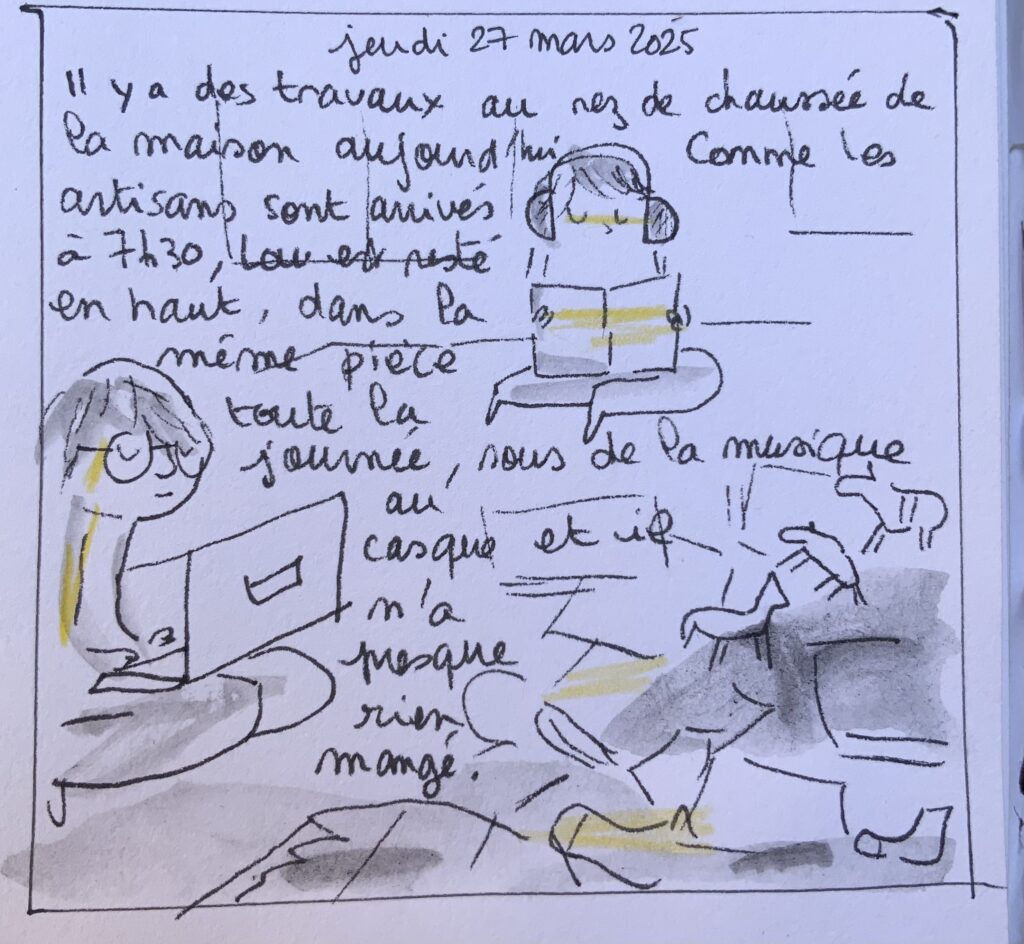 jeudi 27 mars 2025
Il y a des travaux au rez de chaussée de
la maison aujourd'hui Comme les
artisans sont arrivés
à 7h30, Lou est resté
en haut, dans la
même pièce
toute la
journée, sous de la musique
au
casque et il
n'a
presque
rien
mangé.